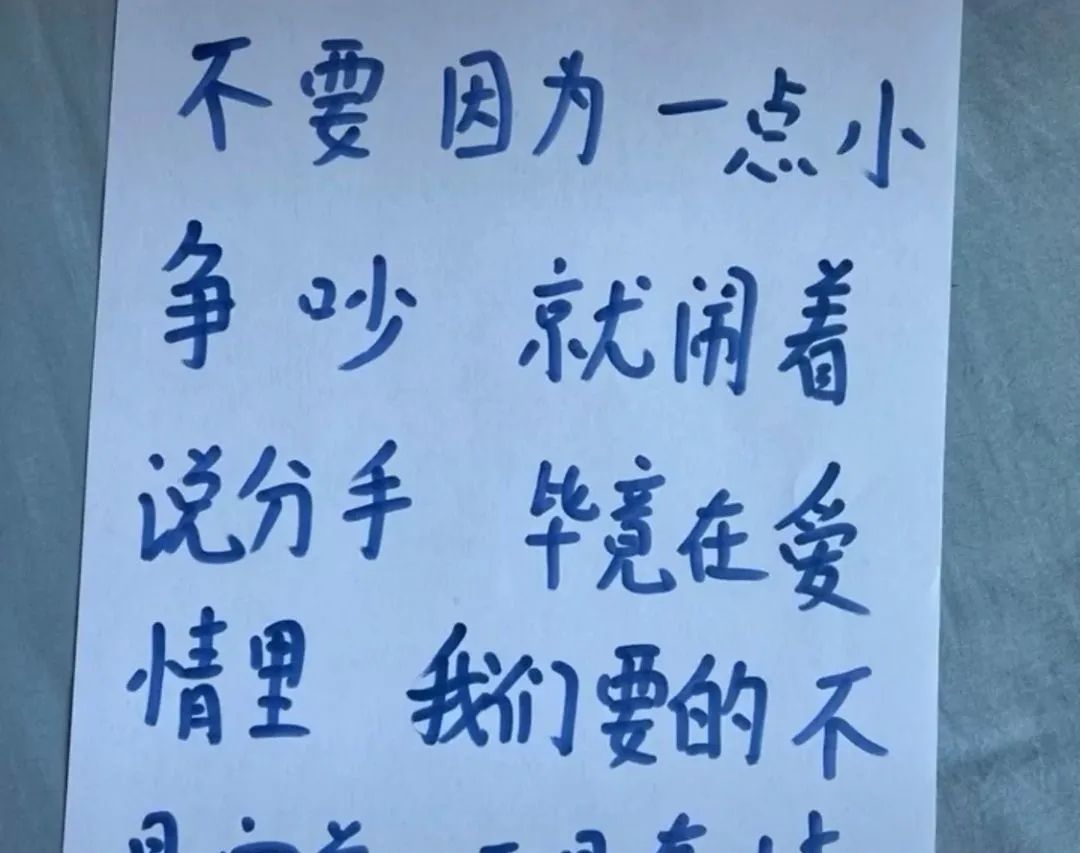 不要因为一点小
争吵 就闹着
说分手 毕竟在爱
情里 我们要的不